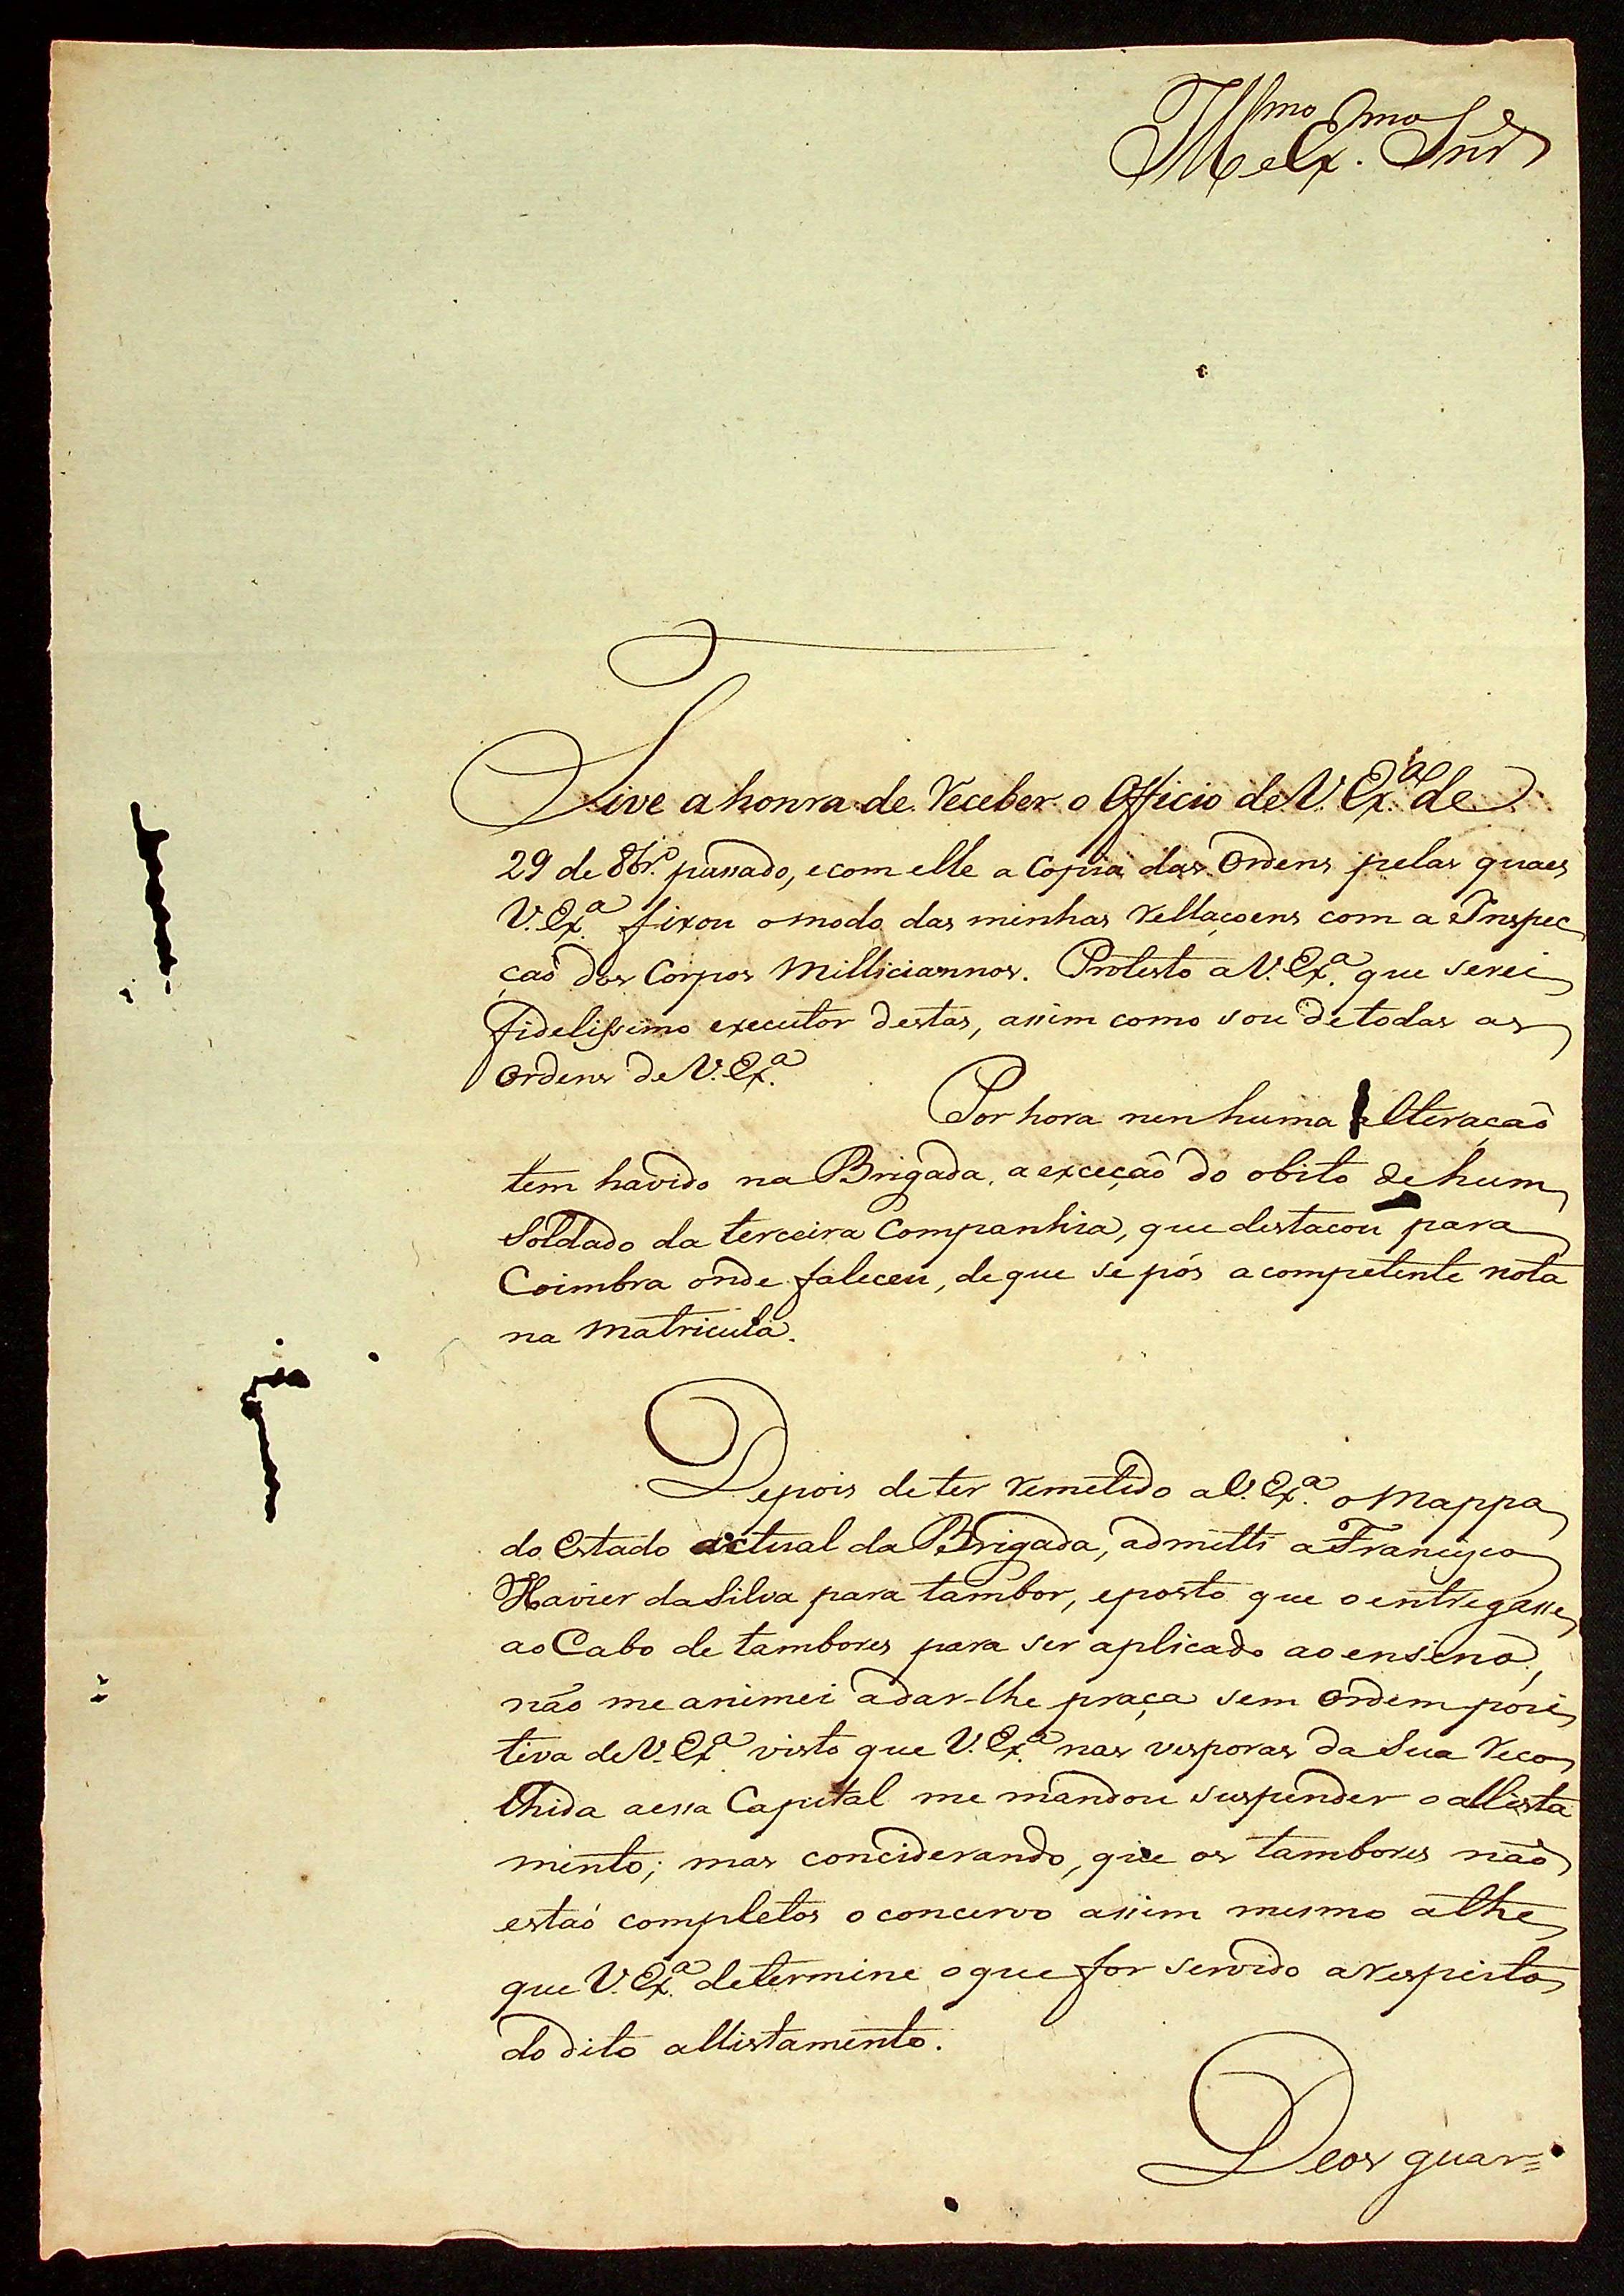 Illmo e Exmo Snr
Tive a honra de receber o Officio de V. Exa de
29 de 8br.º passado, e com elle a Copia das Ordens pelas quaes
V. Exa fixou o modo das minhas rellaçoens com a Inspec
çaõ dos Corpos Milliciannos. Protesto a V. Exa que serei
fidelissimo executor destas, assim como sou de todas as
Ordens de V. Exa
Por hora nenhuma alteraçaõ
tem havido na Brigada, a exceçaõ do obito de hum
Soldado da terceira Companhia, que destacou para
Coimbra onde faleceu, de que se pós a competente nota
na Matricula.
Depois de ter remetido a V. Exa o Mappa
do Estado actual da Brigada, admitti a Francisco
Xavier da Silva para tambor, e posto que o entregasse
ao Cabo de tambores para ser aplicado ao ensino,
não me animei a dar-lhe praça sem Ordem pozi
tiva de V. Exa visto que V. Exa nas vesporas da Sua reco
lhida a essa Capital me mandou suspender o allista
mento; mas conciderando, que os tambores naõ
estaõ completos o concervo assim mesmo athe
que V. Exa determine o que for servido a respeito
do dito allistamento.
Deos guar=